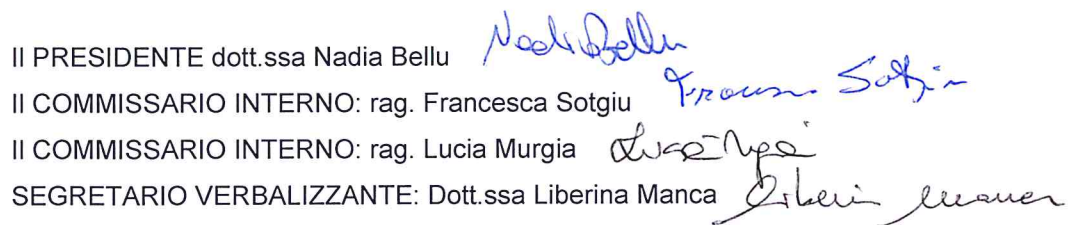 Il PRESIDENTE dott.ssa Nadia Bellu Nadia Bellu
Il COMMISSARIO INTERNO: rag. Francesca Sotgiu Sotgiu
Il COMMISSARIO INTERNO: rag. Lucia Murgia
SEGRETARIO VERBALIZZANTE: Dott.ssa Liberina Manca Manca